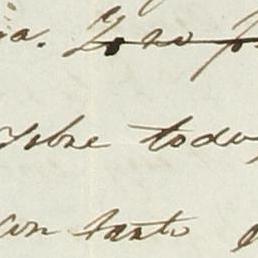 ia. Yo no
sobre todo
con tanto